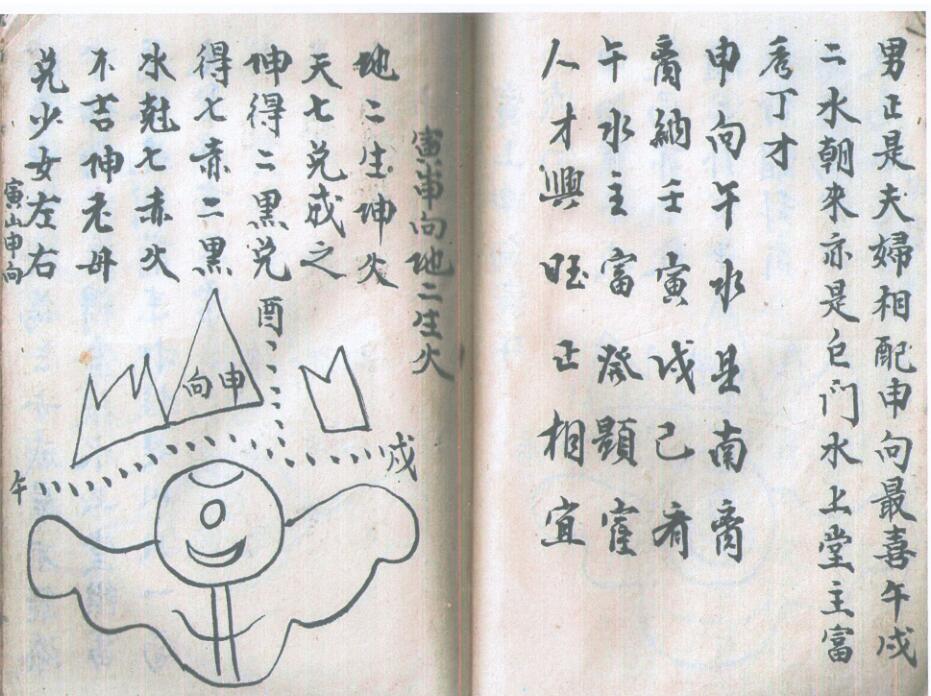 男正是夫婦相配申向最喜午戍
二水朝來亦是包门水上堂主富
秀丁才
申向午水是南离
离納壬寅戊己肴
午水主富癸顕宦
人才興旺正相宜
寅申向地二生火
地二生坤火
天七兑成之
坤得二黒兑
得七赤二黒
水尅七赤火
不吉坤老母
兑少女左右
寅山申向
酉
申向
戍
午